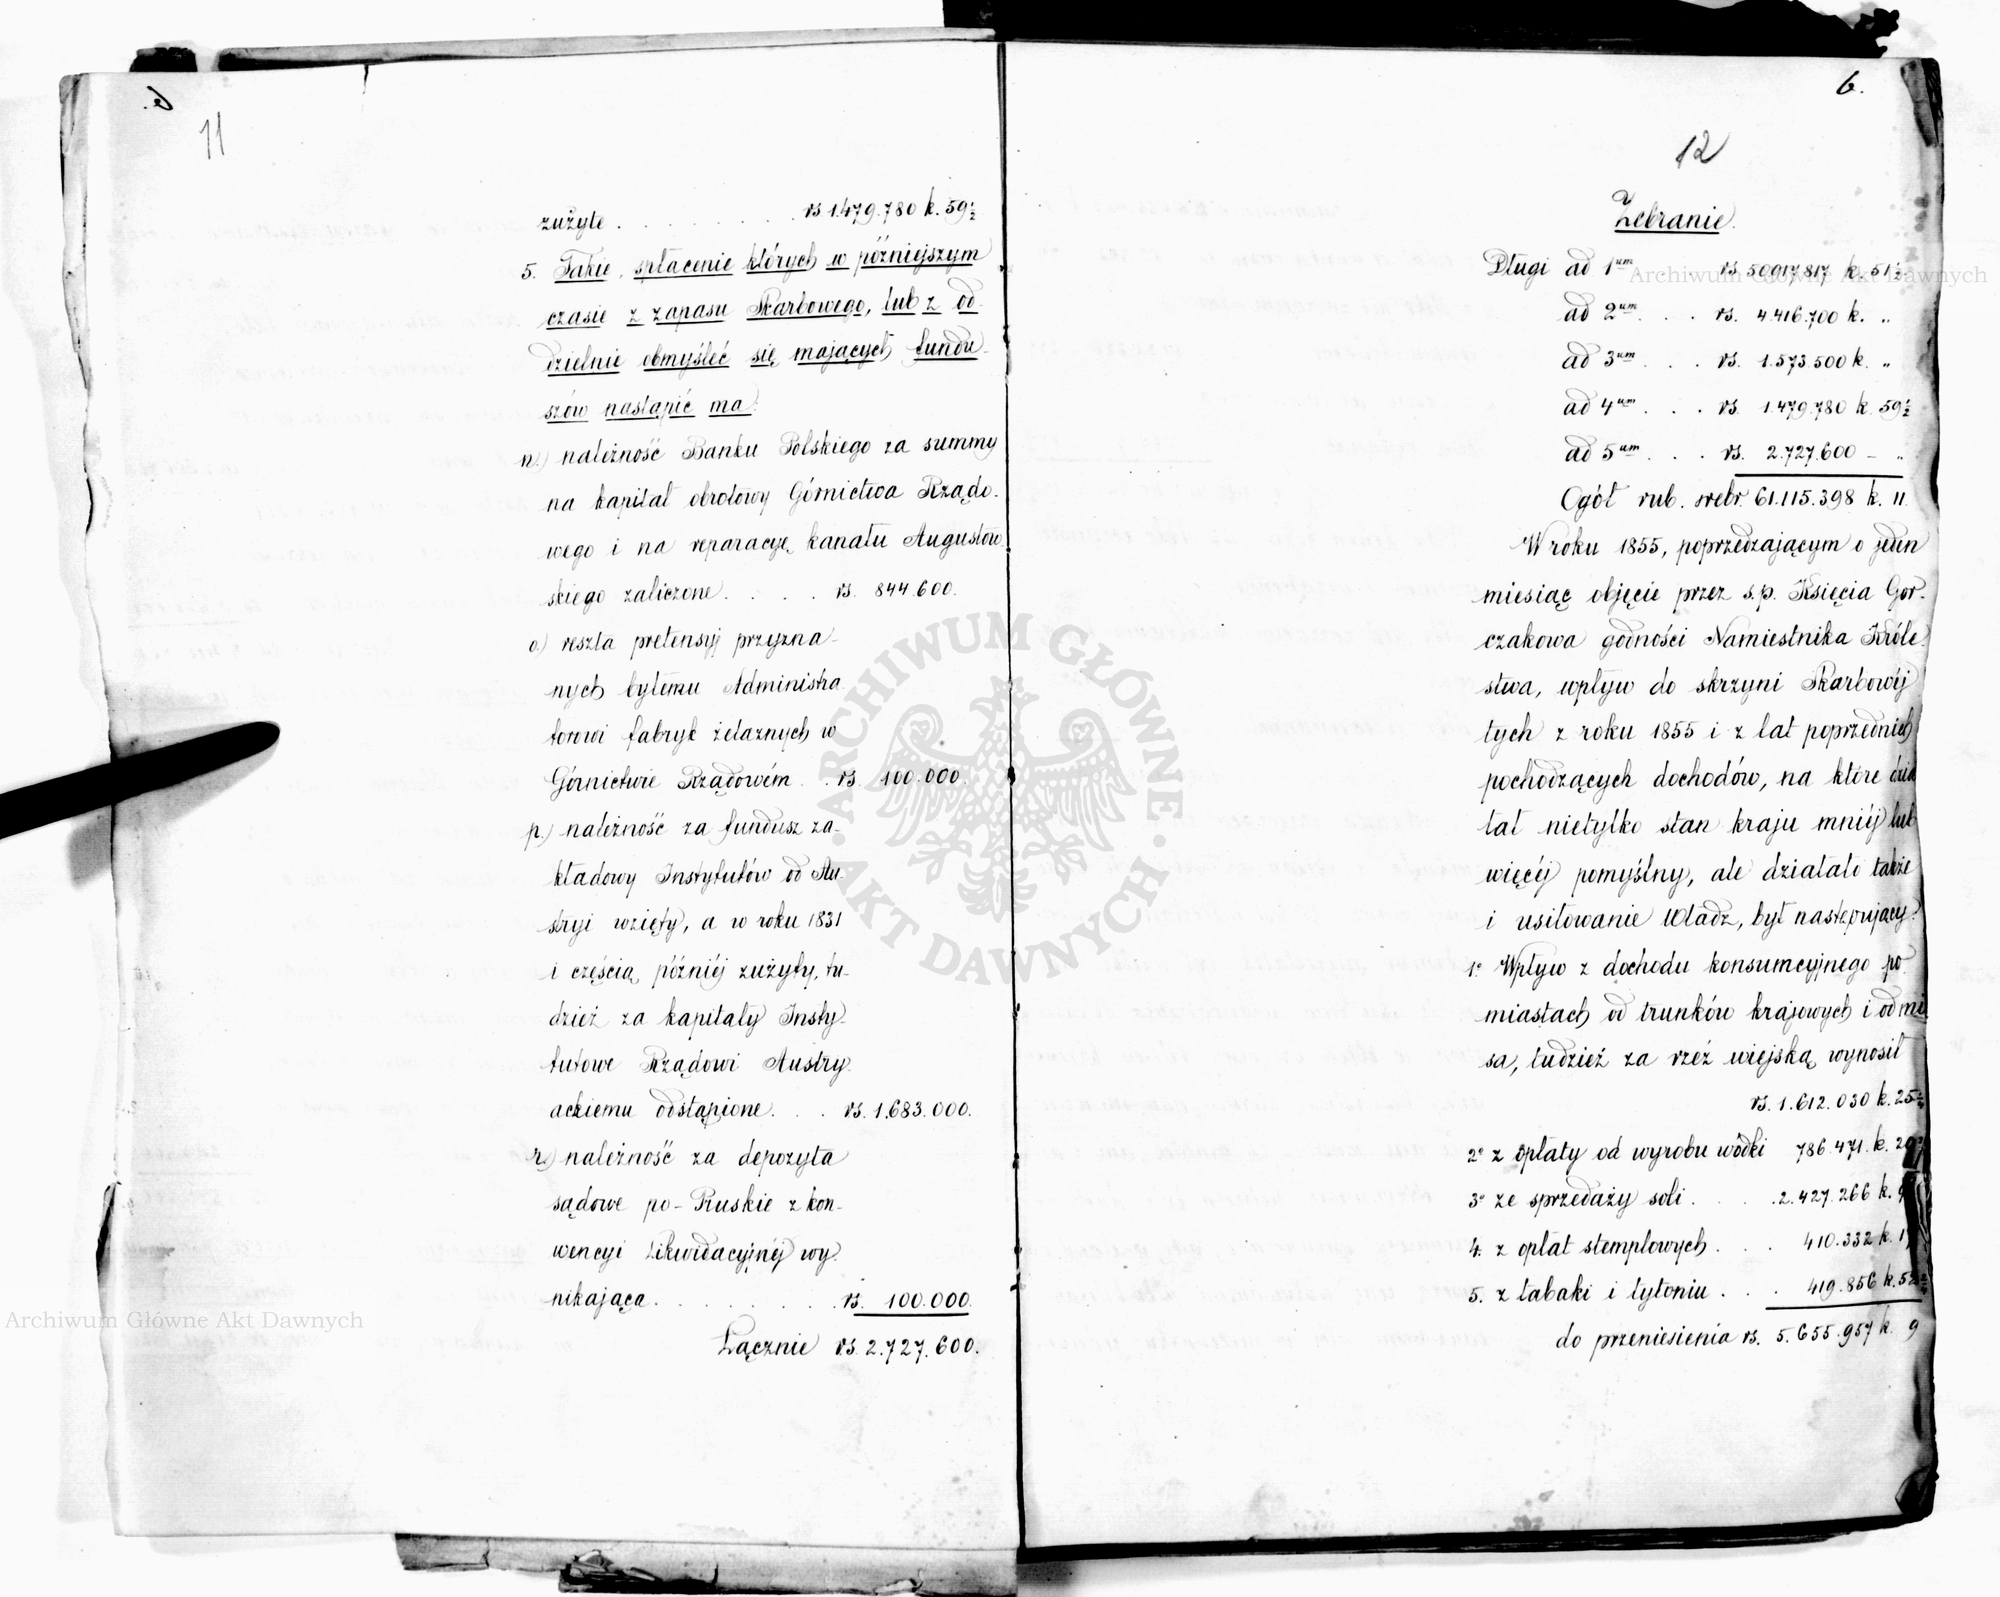 11
zużyte . . . . . . . . rs 1.479.780 k. 59½
5. Takie, spłacenie których w późniejszym
czasie z zapasu Skarbowego, lub z od-
dzielnie obmyśleć się mających fundu-
szów nastąpić ma:
n.) należność Banku Polskiego za summy
na kapitał obrotowy Górnictwa Rządo-
wego i na reparacyę kanału Augustow-
skiego zaliczone . . . . rs. 844.600.
o.) reszta pretensyj przyzna-
nych byłemu Administra-
torowi fabryk żelaznych w
Górnictwie Rządowém . . rs. 100.000.
p.) należność za fundusz za-
kładowy Instytutów od Au-
stryi wzięty, a w roku 1831
i częścią późniéj zużyty, tu-
dzież za kapitały Insty-
tutowe Rządowi Austry-
ackiemu odstąpione . . . rs. 1.683.000.
r.) należność za depozyta
sądowe po-Pruskie z kon-
wencyi Likwidacyjnéj wy-
nikająca . . . . . . . . rs. 100.000.
Łącznie rs. 2.727.600.
6.
12
Zebranie.
Długi ad 1um . . . rs 50917817 k. 51½
ad 2um . . . rs. 4.416.700 k. „
ad 3um . . . rs. 1.573.500 k. „
ad 4um . . . rs. 1.479.780 k. 59½
ad 5um . . . rs. 2.727.600 – „
Ogół rub. srebr. 61.115.398 k. 11.
W roku 1855, poprzedzającym o jeden
miesiąc objęcie przez s.p. Księcia Gor-
czakowa godności Namiestnika Króle-
stwa, wpływ do skrzyni Skarbowéj
tych z roku 1855 i z lat poprzednich
pochodzących dochodów, na które dzia
łał nietylko stan kraju mniéj lub
więcéj pomyślny, ale działało także
i usiłowanie Władz, był następujący:
1° Wpływ z dochodu konsumcyjnego po
miastach od trunków krajowych i od mię
sa, tudzież za rzeź wiejską wynosił
rs. 1.612.030 k. 25
2° z opłaty od wyrobu wódki 786.471. k.
3° ze sprzedaży soli . . . . 2.427.266 k.
4. z opłat stemplowych . . . 410.332 k.
5. z tabaki i tytoniu . . . 419.856 k.
do przeniesienia rs. 5.655.957 k. 9
Archiwum Główne Akt Dawnych
Archiwum Główne Akt Dawnych
ARCHIWUM GŁÓWNE
AKT DAWNYCH